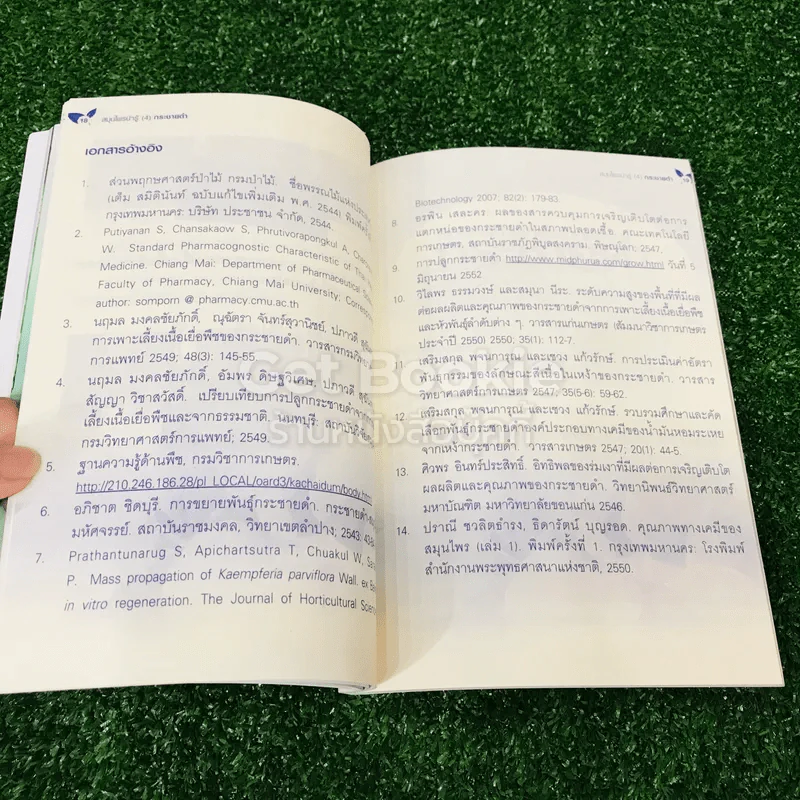 18 สมุนไพรน่ารู้ (4) กระชายดำ
เอกสารอ้างอิง
1. ส่วนพฤกษศาสตร์ป่าไม้ กรมป่าไม้. ชื่อพรรณไม้แห่งประเทศไทย
(เต็ม สมิตินันท์ ฉบับแก้ไขเพิ่มเติม พ.ศ. 2544) พิมพ์ครั้งที่
กรุงเทพมหานคร: บริษัท ประชาชน จำกัด, 2544.
2. Putiyanan S, Chansakaow S, Phrutivorapongkul A,
W. Standard Pharmacognostic Characteristic of
Medicine. Chiang Mai: Department of Pharmaceutical
Faculty of Pharmacy, Chiang Mai University;
author: somporn @ pharmacy.cmu.ac.th
3. นฤมล มงคลชัยภักดิ์, ณุฉัตรา จันทร์สุวานิชย์, ปภาวดี
การเพาะเลี้ยงเนื้อเยื่อพืชของกระชายดำ. วารสารกรมวิทยา
การแพทย์ 2549; 48(3): 145-55.
4. นฤมล มงคลชัยภักดิ์, อัมพร
สัญญา วิชาสวัสดิ์. เปรียบเทียบการปลูกกระชายดำจาก
เลี้ยงเนื้อเยื่อพืชและจากธรรมชาติ, นนทบุรี: สถาบัน
กรมวิทยาศาสตร์การแพทย์; 2549.
5. ฐานความรู้ด้านพืช, กรมวิชาการเกษตร.
http://210.246.186.28/pl_LOCAL/oard3/kachaidum/body.html
6. อภิชาต ชิดบุรี. การขยายพันธุ์กระชายดำ. กระชายดำ
มหัศจรรย์. สถาบันราชมงคล, วิทยาเขตลำปาง; 2543:
7. Prathantunarug S, Apichartsutra T, Chuakul W,
P. Mass propagation of Kaempferia parviflora Wall. ex
in vitro regeneration. The Journal of Horticultural
กระชายดำ 19
Biotechnology 2007; 82(2): 179-83.
8. อรพิน เสละคร. ผลของสารควบคุมการเจริญเติบโตต่อการ
แตกหน่อของกระชายดำในสภาพปลอดเชื้อ. คณะเทคโนโลยี
การเกษตร, สถาบันราชภัฏพิบูลสงคราม. พิษณุโลก: 2547.
9. การปลูกกระชายดำ http://www.midphurua.com/grow.html วันที่ 5
มิถุนายน 2552
10. วิไลพร ธรรมวงษ์ และสมุนา นีระ. ระดับความสูงของพื้นที่ที่มีผล
ต่อผลผลิตและคุณภาพของกระชายดำจากการเพาะเลี้ยงเนื้อเยื่อพืช
และหัวพันธุ์ลำดับต่าง ๆ. วารสารแก่นเกษตร (สัมมนาวิชาการเกษตร
ประจำปี 2550) 2550; 35(1): 112-7.
11. เสริมสกุล พจนการุณ และเชวง แก้วรักษ์. การประเมินค่าอัตรา
พันธุกรรมของลักษณะสีเนื้อในเหง้าของกระชายดำ. วารสาร
วิทยาศาสตร์การเกษตร 2547; 35(5-6): 59-62.
12. เสริมสกุล พจนการุณ และเชวง แก้วรักษ์. รวบรวมศึกษาและคัด
เลือกพันธุ์กระชายดำองค์ประกอบทางเคมีของน้ำมันหอมระเหย
จากเหง้ากระชายดำ. วารสารเกษตร 2547; 20(1): 44-5.
13. ศิวพร อินทร์ประสิทธิ์. อิทธิพลของร่มเงาที่มีผลต่อการเจริญเติบโต
ผลผลิตและคุณภาพของกระชายดำ. วิทยานิพนธ์วิทยาศาสตร์
มหาบัณฑิต มหาวิทยาลัยขอนแก่น 2546.
14. ปราณี ชวลิตธำรง, ธิดารัตน์ บุญรอด. คุณภาพทางเคมีของ
สมุนไพร (เล่ม 1). พิมพ์ครั้งที่ 1. กรุงเทพมหานคร: โรงพิมพ์
สำนักงานพระพุทธศาสนาแห่งชาติ, 2550.
Get Bookie